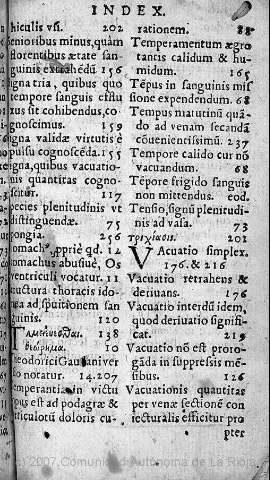 INDEX.
hiculis vsi. 202
senioribus minus, quàm
florentibus ætate san-
guinis extrahēdū 156
signa tria, quibus quo
tempore sanguis effu
xus sit cohibendus, co-
gnoscimus. 159
signa validæ virtutis è
pulsu cognoscēda. 155
signa, quibus vacuatio-
nis quantitas cogno-
scitur. 117
species plenitudinis vt
distinguendæ. 75
spongia. 256
stomach⁹ ppriè qd. 12
stomachus abusiuè, Os
ventriculi vocatur. 11
structura thoracis ido-
nea ad sputionem san
guinis. 120
138
θεώρημα. 10
Theodorici Gaudaniver
sio notatur. 14.207
temperantia in victu
opus est ad podagræ &
articulorū doloris cu-
rationem. 88
Temperamentum ægro
tantis calidum & hu-
midum. 165
Tēpus in sanguinis mis
sione expendendum. 68
Tempus matutinū quā-
do ad venam secandā
cōuenientissimū. 237
Tempore calido cur nō
vacuandum. 68
Tēpore frigido sanguis
non mittendus. eod.
Tensio, signū plenitudi-
nis ad vasa. 73
τριχίασις. 201
VAcuatio simplex.
176. & 216
Vacuatio retrahens &
deriuans. 176
Vacuatio interdū idem,
quod deriuatio signifi-
cat. 219
Vacuatio nō est proro-
gāda in suppressis mē-
sibus. 126
Vacuationis quantitas
per venæ sectionē con
iecturalis efficitur pro
pter
2007 Comunidad Autónoma de La Rioja